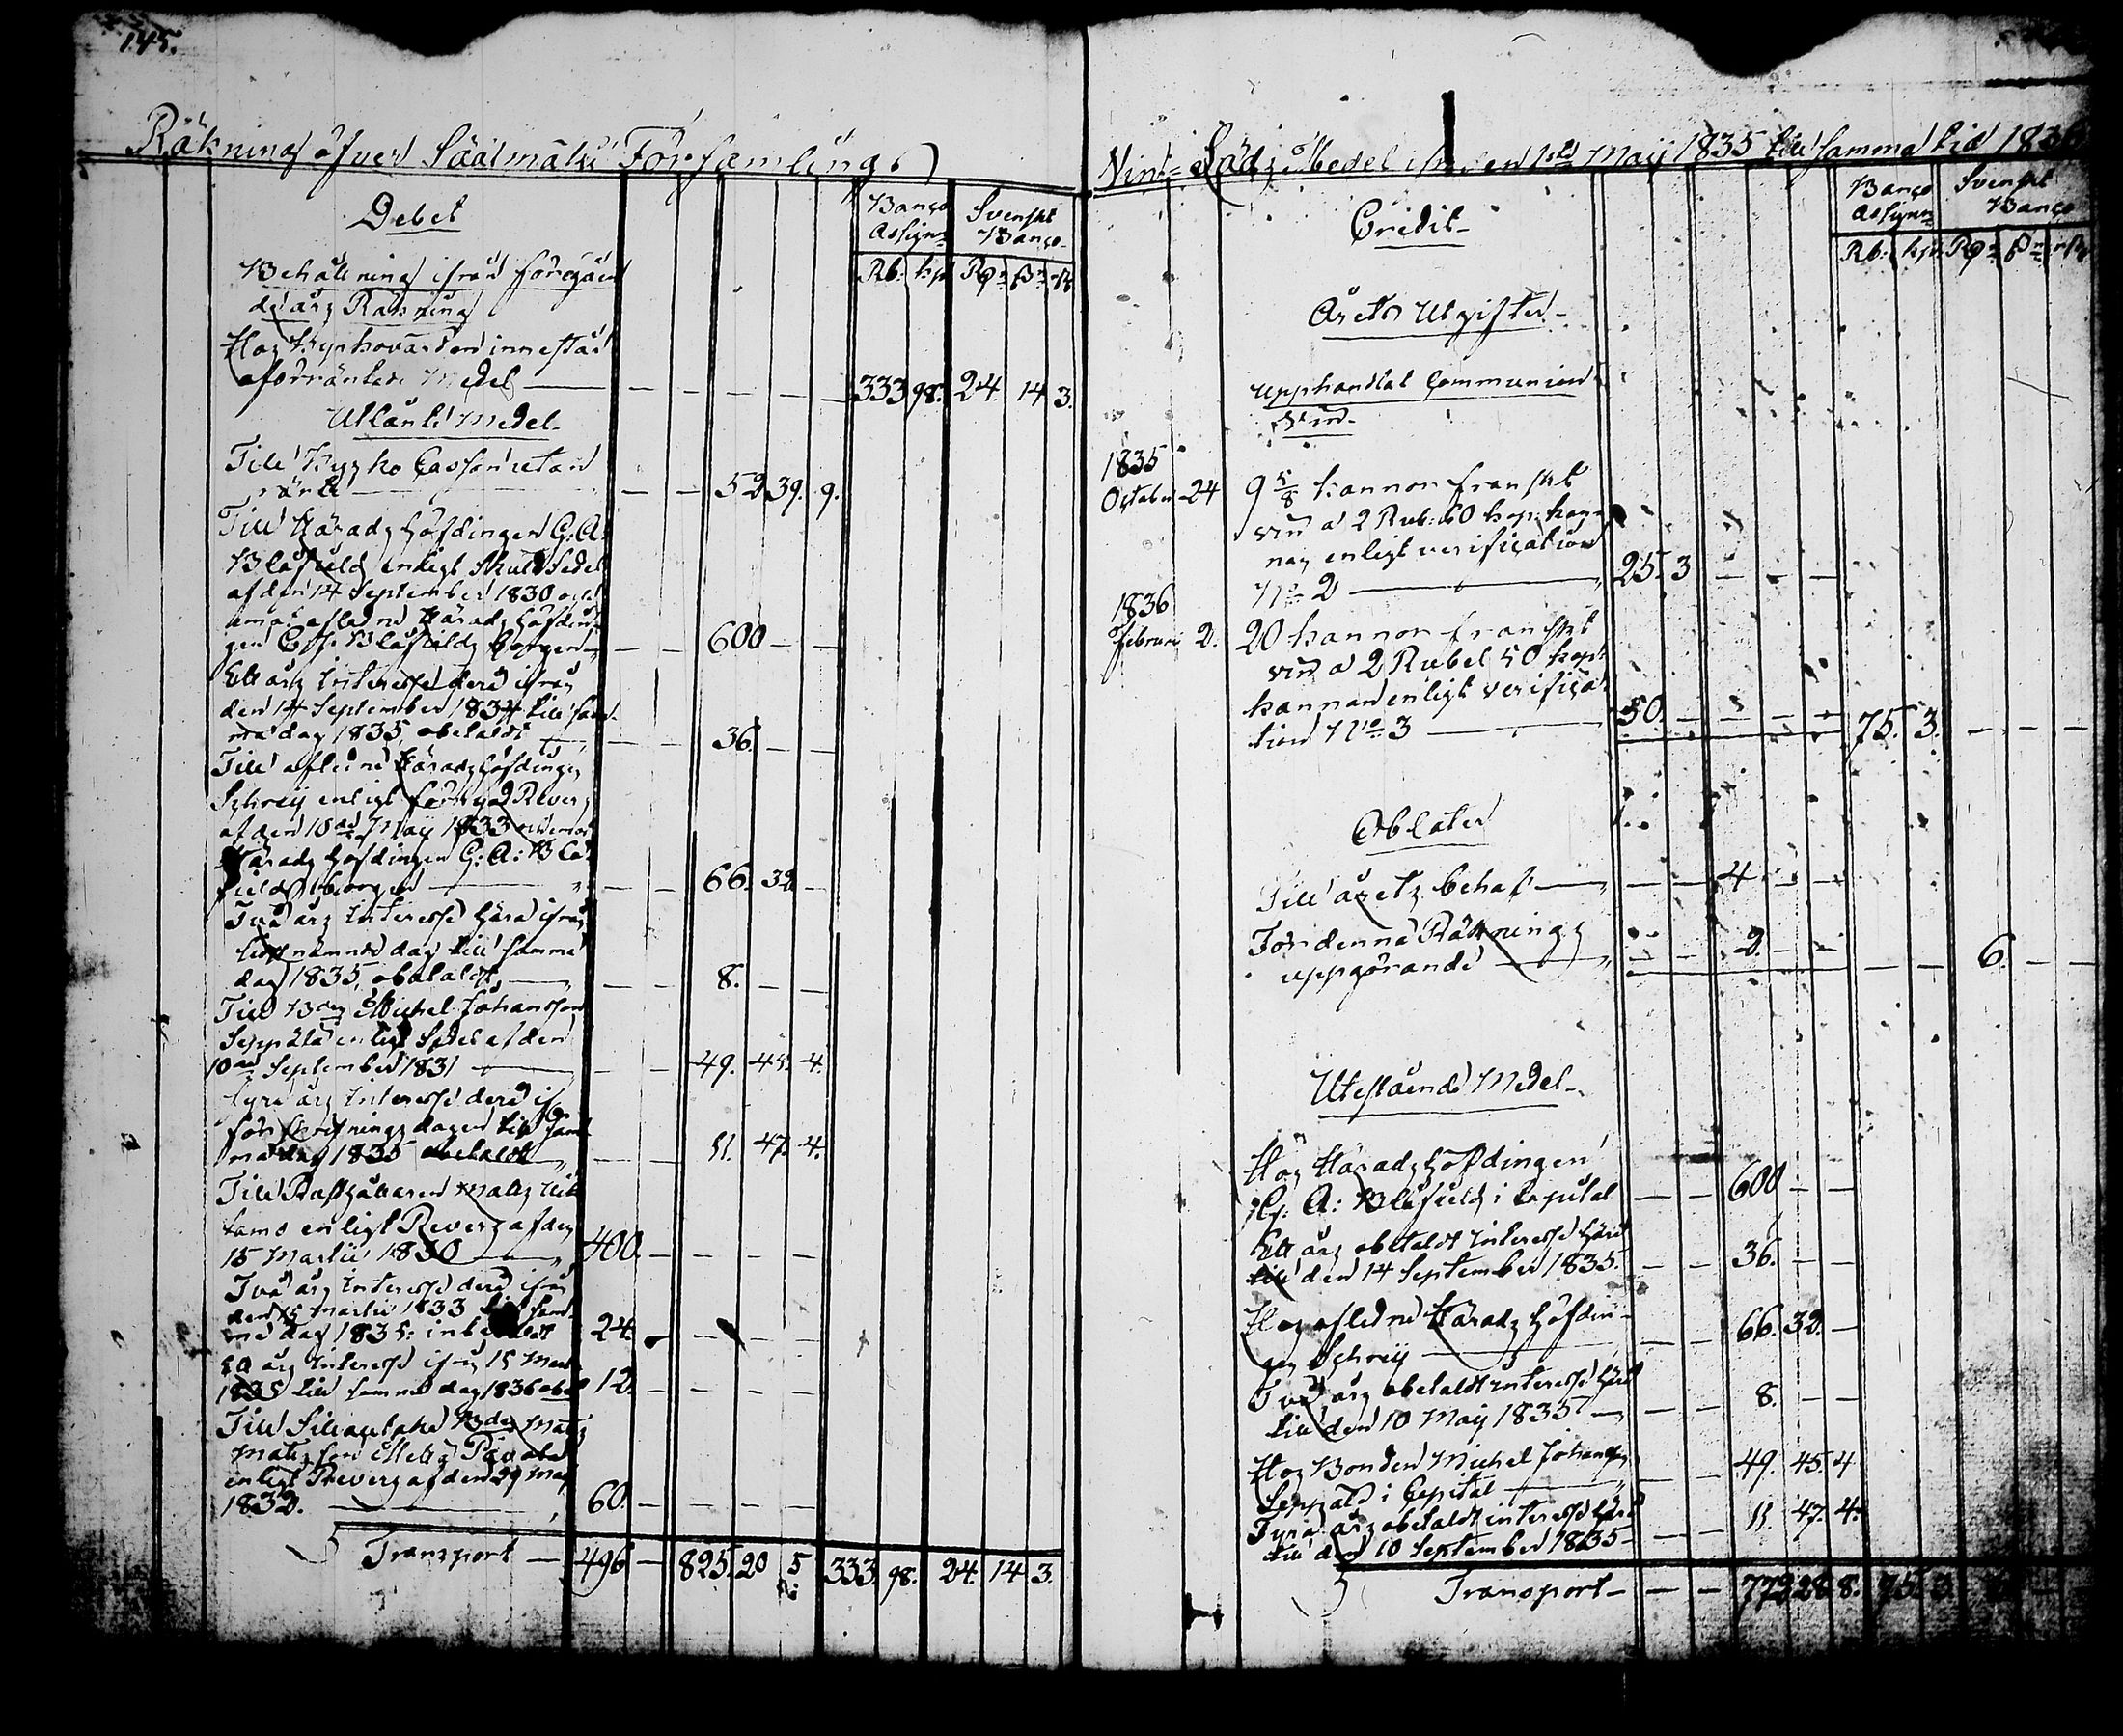 145.
Räkning öfver Säämäki Församlings
Debet
Banco Assign: Svenskt Banco
Rb: kp Rd ß rst
Behållning ifrån föregåen
de års Räkning
Hos Kyrkovärden innestår
oförräntade Medel — 333 98. 24. 14 3.
Utlänte Medel
Till Kyrko Cassan utan
ränta — 52 39. 9.
Till Häradshöfdingen G: A:
Blåfield enligt Skuldsedel
af den 14 September 1830 och
emot afledne Häradshöfdin
gen Blåfields borgen — 600 — —
Ett års Interesse derå ifrån
den 14 September 1834 till sam
ma dag 1835 obetalt — 36. — —
Till afledne Häradshöfdingen
Schreij enligt Revers
af den 10de Maij 1833 emot
Häradshöfdingen G: A: Blå
fields borgen — 66. 32 —
Två års Interesse härå ifrån
sistnämnde dag till samma
dag 1835, obetalt — 8. — —
Till Bon Michel Johansson
Seppälä enligt Sedel af den
10de September 1831 — 49. 45. 4.
Fyra års Interesse derå if
förskrifnings dagen till sam
ma dag 1835 obetalt — 11. 47. 4.
Till Rusthållaren Matts
enligt Revers af den
15 Martii 1830 — 400. — — — —
Två års Interesse derå ifrån
den 15 Martii 1833 till sam
ma dag 1835: inbetalt 24. — — — —
års Interesse ifrån 15 Mart
1835 till samma dag 1836 obet 12. — — — —
Till Bde Matts
Mattsson
enligt Revers af den 29 Maj
1832. — 60. — — — —
Transport — 496 — 825. 20 5 333. 98. 24. 14 3.
Vin- Säds Medel ifrån den 1sta Maij 1835 till samma tid 1836
Credit
Banco Assign: Svenskt Banco
Rb: kp: Rd ß rst
Årets Utgifter
Upphandlat Communion
Vin
1835
October 24 9 5/8 kannor franskt
vin á 2 Rub: 60 kop: kan
nan enligt verification
No 2 — 25. 3 — — —
1836
Februari 2. 20 kannor franskt
vin á 2 Rubel 50 kop:
kannan enligt verifica
tion No 3 — 50. — — — — 75. 3. — — —
Oblater
Till årets behof — — — 4 — —
För denna Räknings
uppgörande — — — 2. — — — — 6. — —
Utestående Medel
Hos Häradshöfdingen
G: A: Blåfield i Capital — — 600 — —
Ett års obetalt Interesse härå
till den 14 September 1835. — — 36. — —
Hos afledne Häradshöfdin
gen Schreij — — 66. 32. —
Två års obetalt interesse härå
till den 10 Maij 1835 — — — 8. — —
Hos Bonden Michel Johansson
Seppälä i Capital — — 49. 45. 4
Fyra års obetalt interesse härå
till den 10 September 1835 — — 11. 47. 4.
Transport — — — 772 28 8. 75. 3. 6. — —